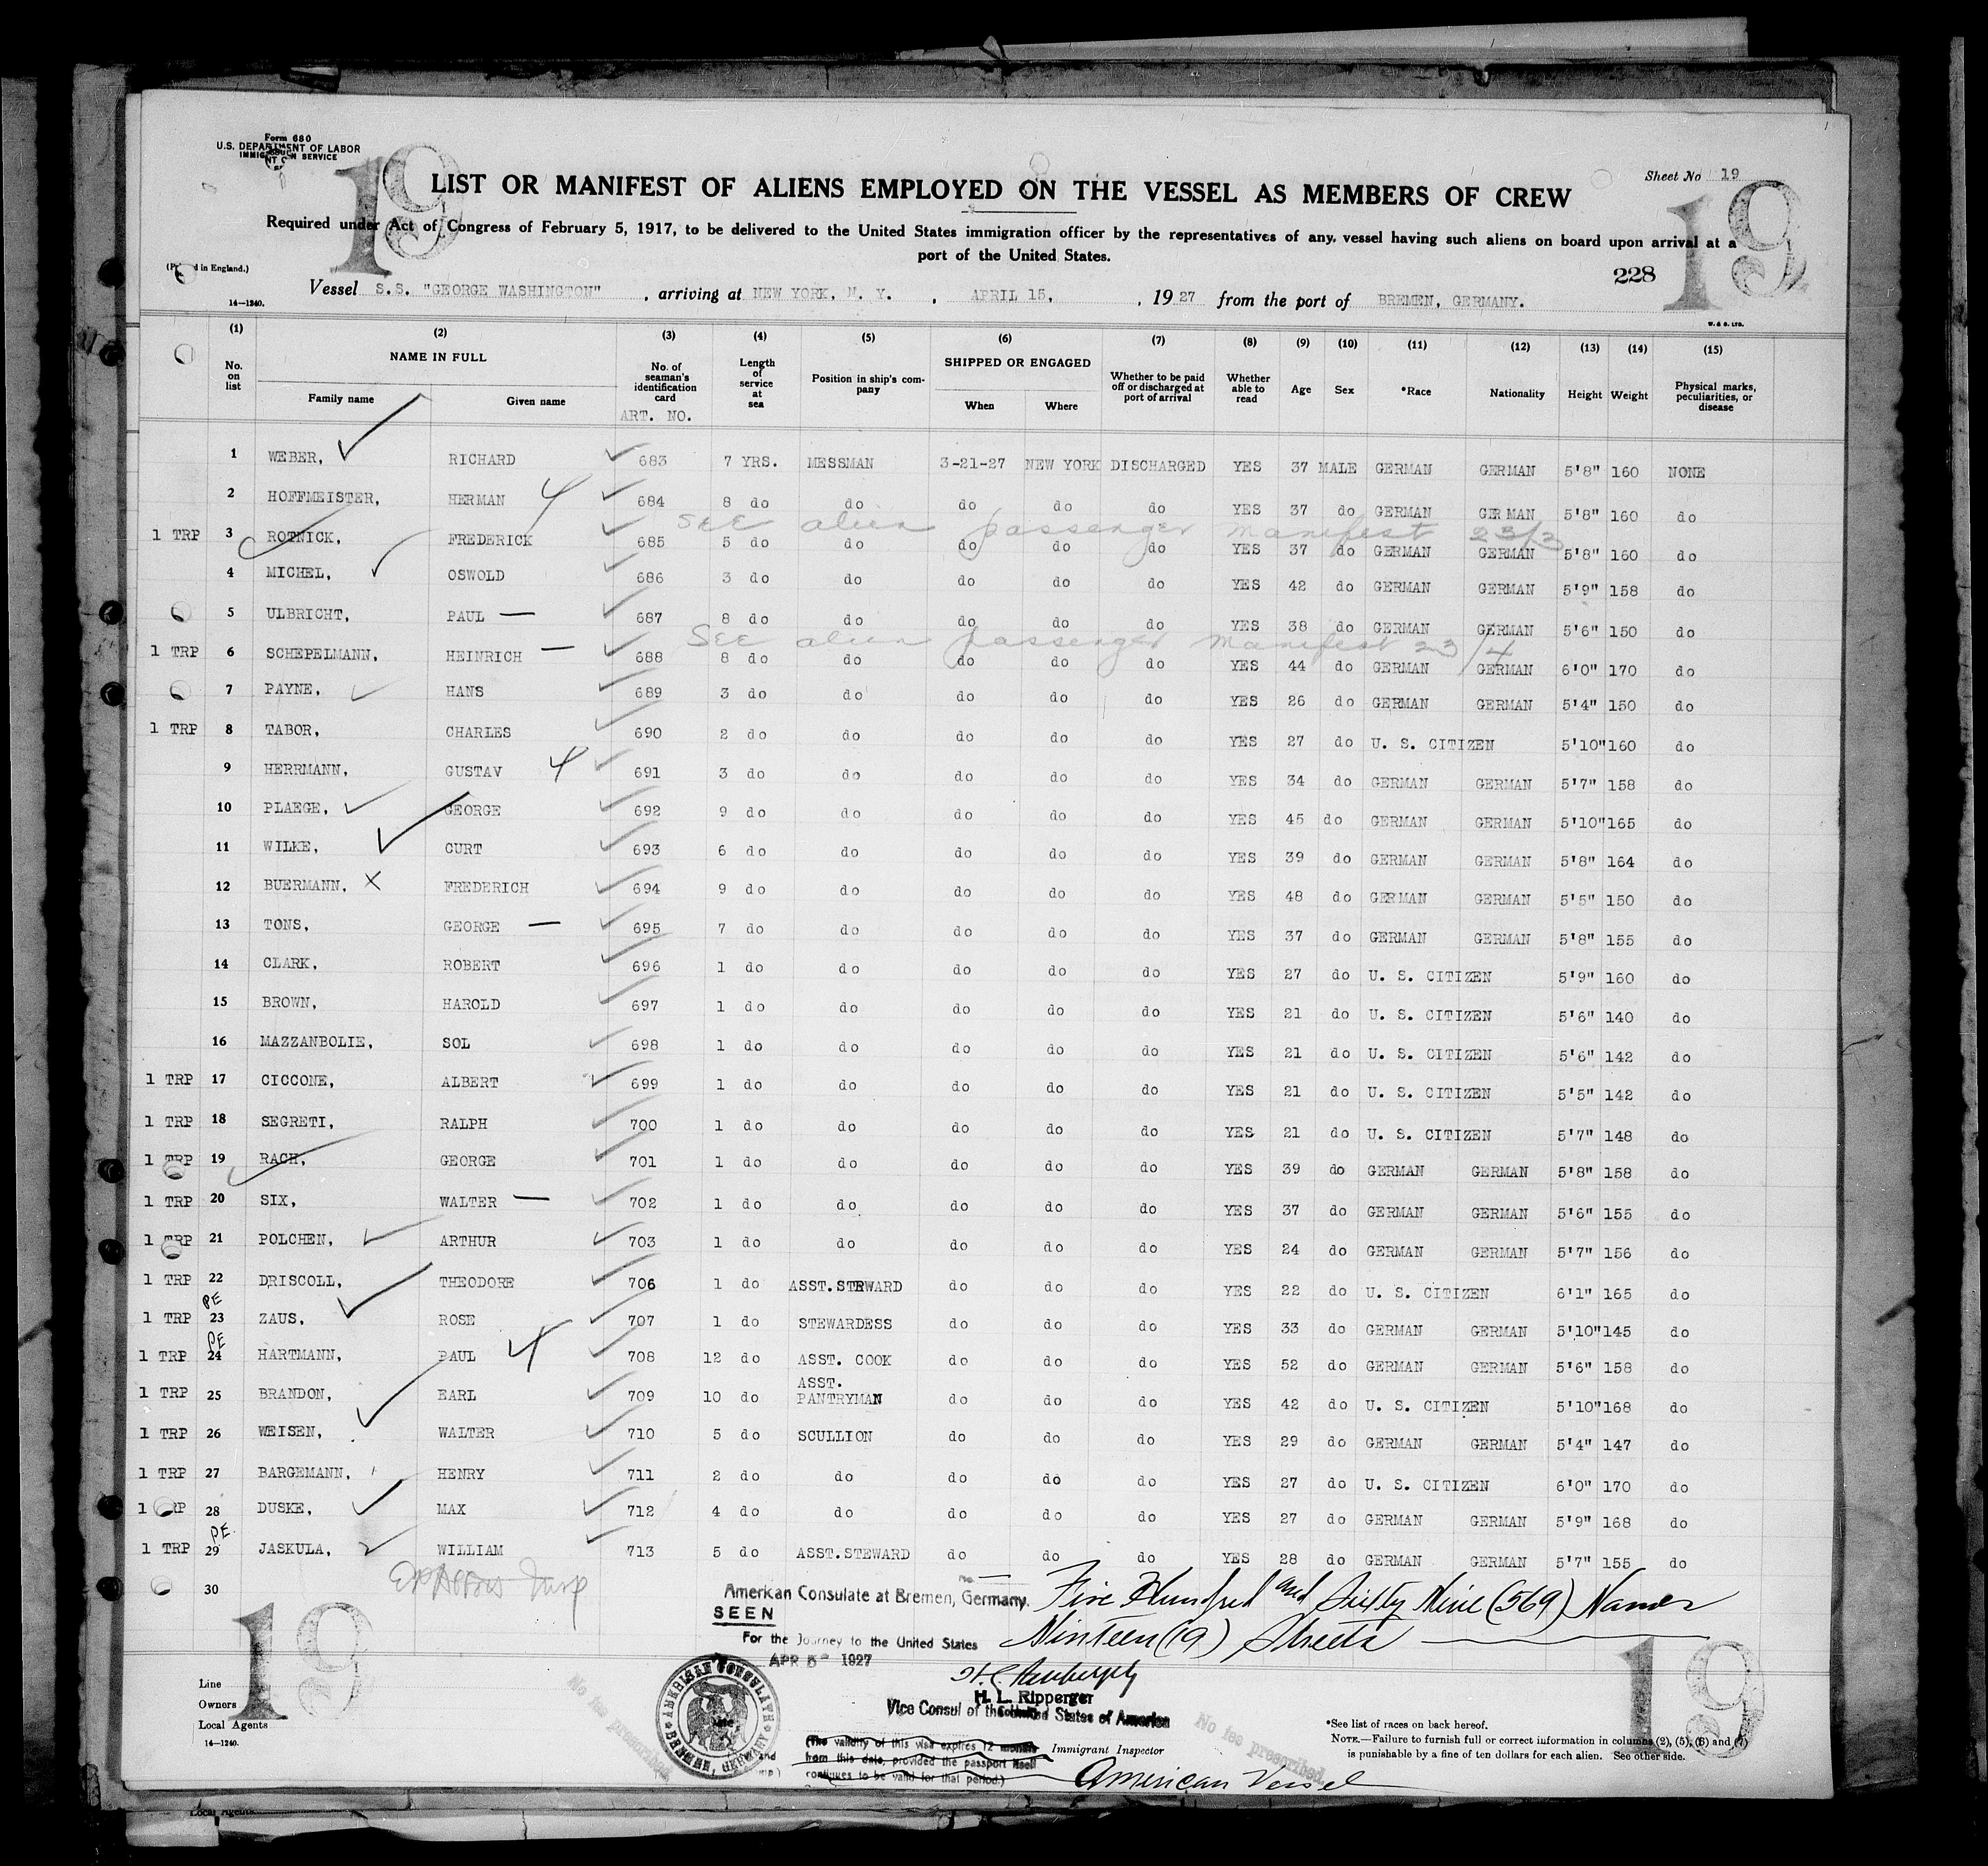 Form 680
U.S. DEPARTMENT OF LABOR
IMMIGRATION SERVICE
19
19
Sheet No 19
LIST OR MANIFEST OF ALIENS EMPLOYED ON THE VESSEL AS MEMBERS OF CREW
Required under Act of Congress of February 5, 1917, to be delivered to the United States immigration officer by the representatives of any vessel having such aliens on board upon arrival at a
port of the United States.
(Printed in England.)
228
14—1240.
Vessel S.S. "GEORGE WASHINGTON" , arriving at NEW YORK, N. Y. , APRIL 15, , 1927 from the port of BREMEN, GERMANY.
W. & S. LTD.
(1) (2) (3) (4) (5) (6) (7) (8) (9) (10) (11) (12) (13) (14) (15)
No. on list NAME IN FULL Family name Given name No. of seaman's identification card ART. NO. Length of service at sea Position in ship's company SHIPPED OR ENGAGED When Where Whether to be paid off or discharged at port of arrival Whether able to read Age Sex *Race Nationality Height Weight Physical marks, peculiarities, or disease
1 WEBER, RICHARD 683 7 YRS. MESSMAN 3-21-27 NEW YORK DISCHARGED YES 37 MALE GERMAN GERMAN 5'8" 160 NONE
2 HOFFMEISTER, HERMAN 4 684 8 do do do do do YES 37 do GERMAN GERMAN 5'8" 160 do
SEE alien passenger manifest 23/3
1 TRP 3 ROTNICK, FREDERICK 685 5 do do do do do YES 37 do GERMAN GERMAN 5'8" 160 do
4 MICHEL, OSWOLD 686 3 do do do do do YES 42 do GERMAN GERMAN 5'9" 158 do
5 ULBRICHT, PAUL — 687 8 do do do do do YES 38 do GERMAN GERMAN 5'6" 150 do
SEE alien passenger manifest 23/4
1 TRP 6 SCHEPELMANN, HEINRICH — 688 8 do do do do do YES 44 do GERMAN GERMAN 6'0" 170 do
7 PAYNE, HANS 689 3 do do do do do YES 26 do GERMAN GERMAN 5'4" 150 do
1 TRP 8 TABOR, CHARLES 690 2 do do do do do YES 27 do U. S. CITIZEN 5'10" 160 do
9 HERRMANN, GUSTAV 4 691 3 do do do do do YES 34 do GERMAN GERMAN 5'7" 158 do
10 PLAEGE, GEORGE 692 9 do do do do do YES 45 do GERMAN GERMAN 5'10" 165 do
11 WILKE, CURT 693 6 do do do do do YES 39 do GERMAN GERMAN 5'8" 164 do
12 BUERMANN, X FREDERICH 694 9 do do do do do YES 48 do GERMAN GERMAN 5'5" 150 do
13 TONS, GEORGE — 695 7 do do do do do YES 37 do GERMAN GERMAN 5'8" 155 do
14 CLARK, ROBERT 696 1 do do do do do YES 27 do U. S. CITIZEN 5'9" 160 do
15 BROWN, HAROLD 697 1 do do do do do YES 21 do U. S. CITIZEN 5'6" 140 do
16 MAZZANBOLIE, SOL 698 1 do do do do do YES 21 do U. S. CITIZEN 5'6" 142 do
1 TRP 17 CICCONE, ALBERT 699 1 do do do do do YES 21 do U. S. CITIZEN 5'5" 142 do
1 TRP 18 SEGRETI, RALPH 700 1 do do do do do YES 21 do U. S. CITIZEN 5'7" 148 do
1 TRP 19 RACH, GEORGE 701 1 do do do do do YES 39 do GERMAN GERMAN 5'8" 158 do
1 TRP 20 SIX, WALTER — 702 1 do do do do do YES 37 do GERMAN GERMAN 5'6" 155 do
1 TRP 21 POLCHEN, ARTHUR 703 1 do do do do do YES 24 do GERMAN GERMAN 5'7" 156 do
1 TRP 22 DRISCOLL, THEODORE 706 1 do ASST.STEWARD do do do YES 22 do U. S. CITIZEN 6'1" 165 do
PE
1 TRP 23 ZAUS, ROSE 707 1 do STEWARDESS do do do YES 33 do GERMAN GERMAN 5'10" 145 do
PE
1 TRP 24 HARTMANN, PAUL 4 708 12 do ASST. COOK do do do YES 52 do GERMAN GERMAN 5'6" 158 do
1 TRP 25 BRANDON, EARL 709 10 do ASST. PANTRYMAN do do do YES 42 do U. S. CITIZEN 5'10" 168 do
1 TRP 26 WEISEN, WALTER 710 5 do SCULLION do do do YES 29 do GERMAN GERMAN 5'4" 147 do
1 TRP 27 BARGEMANN, HENRY 711 2 do do do do do YES 27 do U. S. CITIZEN 6'0" 170 do
1 TRP 28 DUSKE, MAX 712 4 do do do do do YES 27 do GERMAN GERMAN 5'9" 168 do
PE
1 TRP 29 JASKULA, WILLIAM 713 5 do ASST.STEWARD do do do YES 28 do GERMAN GERMAN 5'7" 155 do
30
American Consulate at Bremen, Germany. Five Hundred and Sixty Nine (569) Names
SEEN
For the Journey to the United States Ninteen (19) Sheets
APR 5 1927
19
19
H. L. Ripperger
Vice Consul of the United States of America
AMERICAN CONSULATE BREMEN, GERMANY
No fee prescribed.
No fee prescribed.
Line
Owners
Local Agents
14—1240.
(The validity of this visa expires 12 months
from this date, provided the passport itself
continues to be valid for that period.)
Immigrant Inspector
American Vessel
*See list of races on back hereof.
NOTE.—Failure to furnish full or correct information in columns (2), (5), (6) and (7)
is punishable by a fine of ten dollars for each alien. See other side.
Local Agents